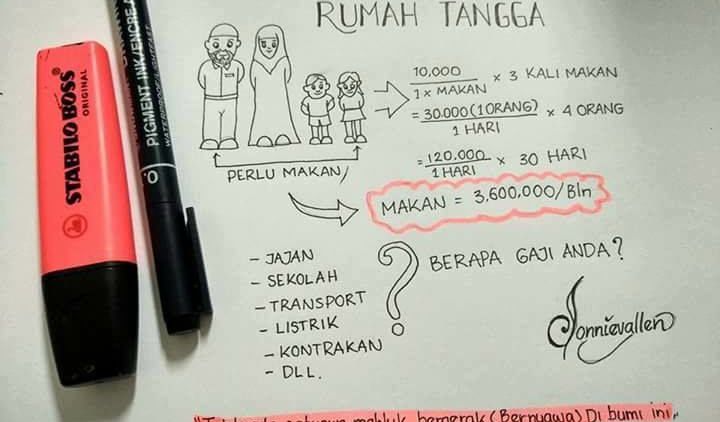 RUMAH TANGGA
STABILO BOSS
ORIGINAL
PIGMENT INK/ENCRE
10,000 × 3 KALI MAKAN
1 × MAKAN
= 30.000 (1 ORANG) × 4 ORANG
1 HARI
= 120.000 × 30 HARI
1 HARI
PERLU MAKAN/
MAKAN = 3,600,000/Bln
- JAJAN
- SEKOLAH
- TRANSPORT
- LISTRIK
- KONTRAKAN
- DLL.
?
BERAPA GAJI ANDA?
Jonnievallen
mahluk bergerak (Bernyawa) Di bumi ini